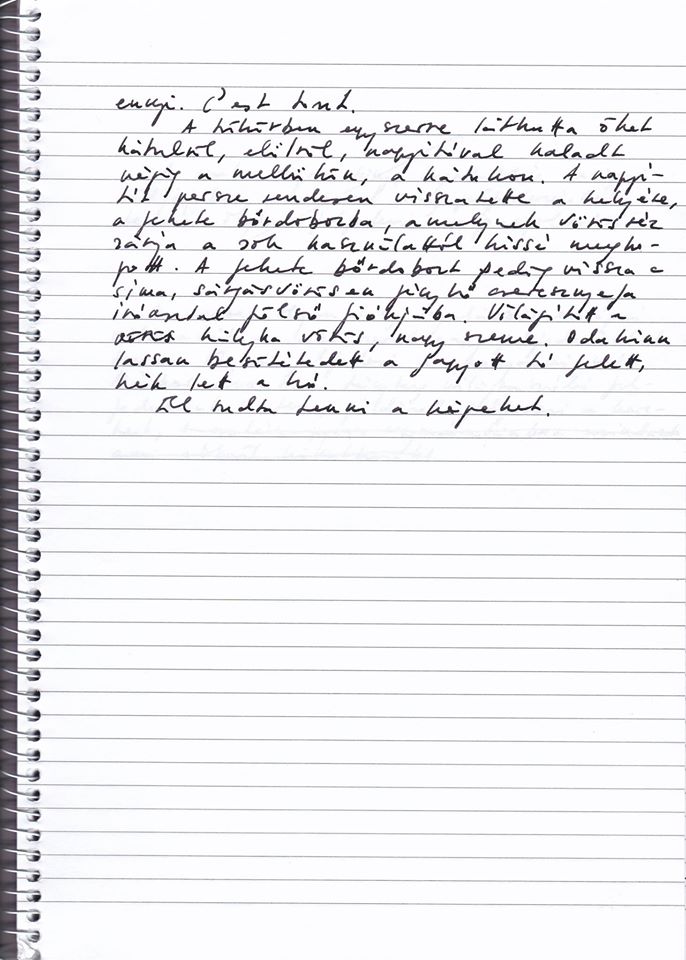 ennyi. C'est tout.
A tükörben egyszerre láthatta őket
hátulról, elölről, nagyítóval haladt
végig a mellükön, a hátukon. A nagyí-
tót persze rendesen visszatette a helyére,
a fekete bőrdobozba, amelynek vörösréz
zárja a sok használattól kissé megko-
pott. A fekete bőrdobozt pedig vissza a
sima, sárgásvörösen fénylő cseresznyefa
íróasztal fölső fiókjába. Világított a
kályha vörös, nagy szeme. Odakinn
lassan besötétedett a fagyott tó felett,
kék lett a hó.
El tudta tenni a képeket.